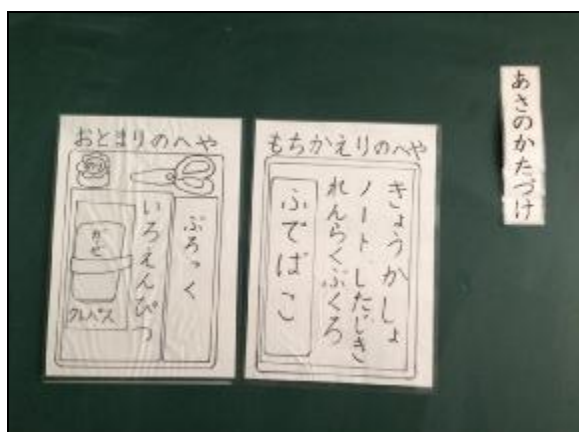 あさのかたづけ
もちかえりのへや
きょうかしょ
ノート したじき
れんらくぶくろ
ふでばこ
おとまりのへや
ぶろっく
いろえんぴつ
クレパス